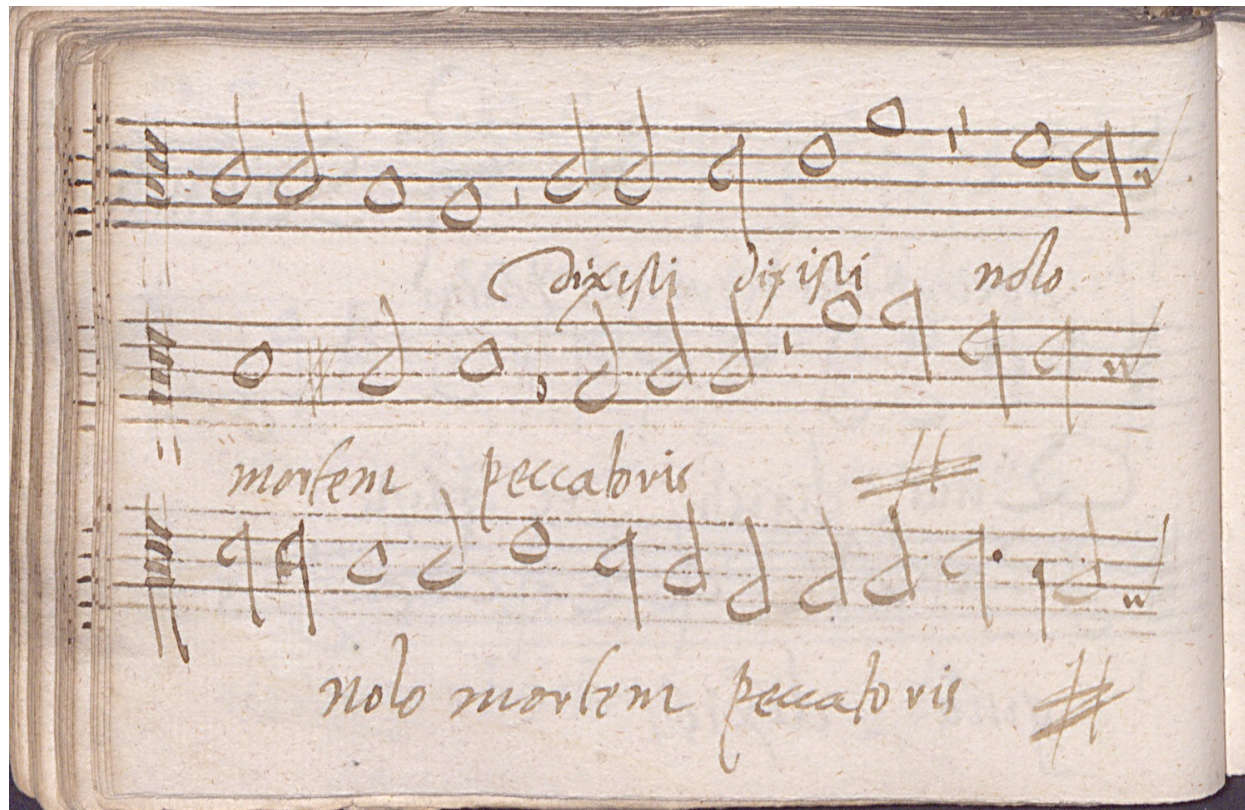 dixisti dixisti nolo
mortem peccatoris
nolo mortem peccatoris